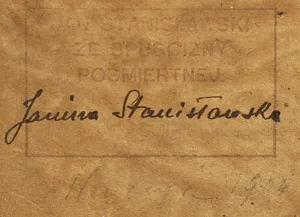 JAN STANISŁAWSKI
ZE SPUŚCIZNY
POŚMIERTNEJ
Janina Stanisławska